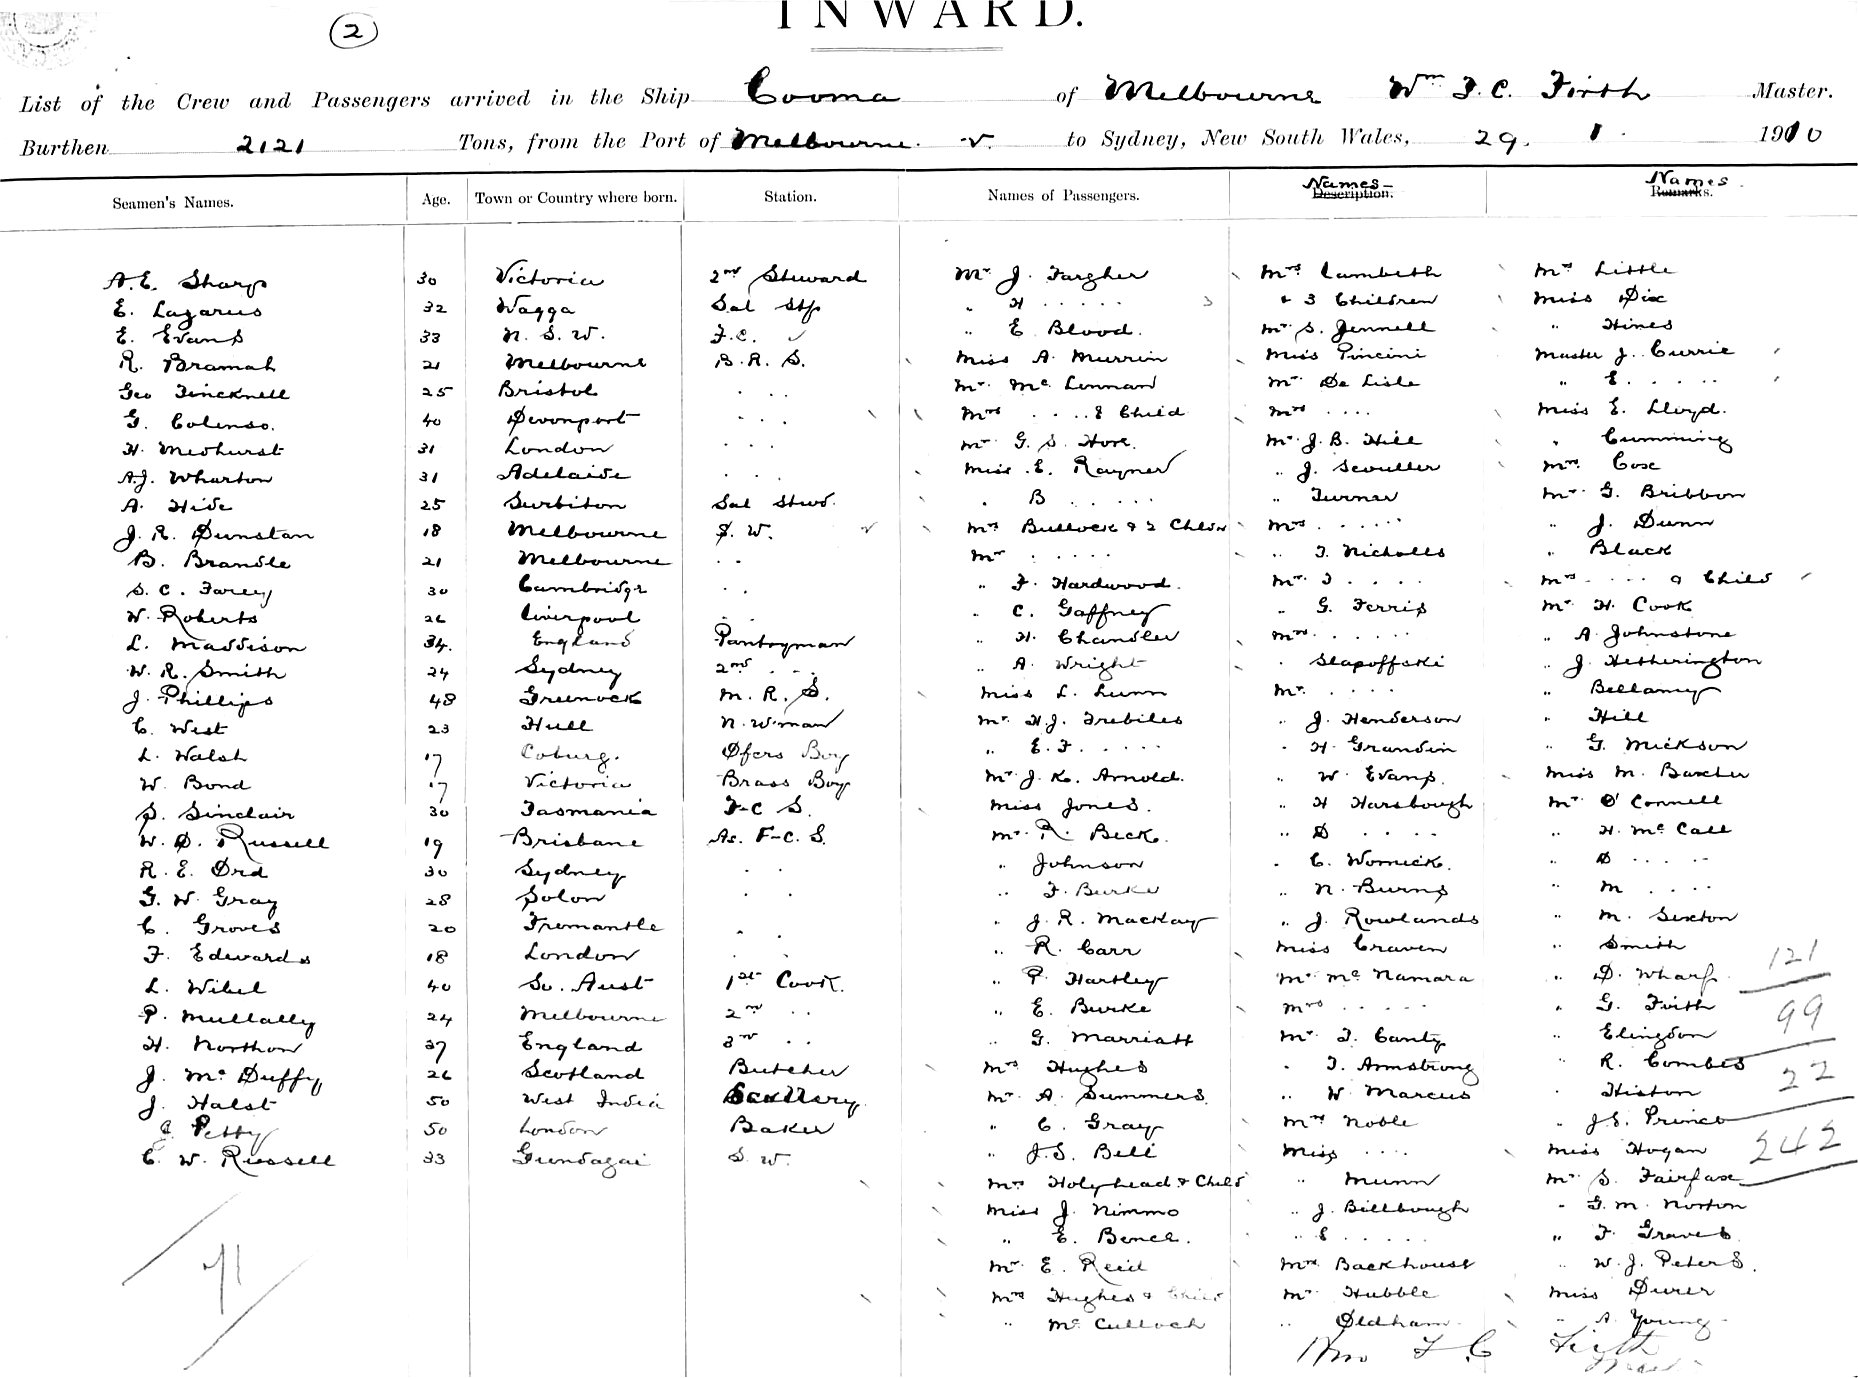 2
INWARD.
List of the Crew and Passengers arrived in the Ship Cooma of Melbourne Wm F. C. Firth Master.
Burthen 2121 Tons, from the Port of Melbourne. V. to Sydney, New South Wales, 29. 1. 1910
Seamen's Names. Age. Town or Country where born. Station. Names of Passengers. Names Description. Names Remarks.
A. E. Sharp 30 Victoria 2nd Steward Mr. J. Fargher Mrs Lambeth Mrs Little
E. Lazarus 32 Wagga Sal " H . . . . . & 3 Children Miss Dix
E. Evans 33 N. S. W. F.C. " E Blood. Mr S. Jennell " Hines
R. Bramah 21 Melbourne B. R. S. Miss A. Murrin Miss Pincini Master J. Currie
Geo Tincknell 25 Bristol . . . Mr. Mc Lennan Mr De Lisle " E. . . . .
G. Colenso. 40 Devonport . . . Mrs . . . . & Child Mrs . . . . Miss E. Lloyd.
H. Medhurst 31 London . . . Mr G. S. Hore. Mr. J. B. Hill " Cumming
A.J. Wharton 31 Adelaide . . Miss E. Rayner " J. Scouller Mrs. Cox
A. Hide 25 Surbiton Sal Stwd. " B . . . . . " Turner Mr. G. Bribbon
J. R. Dunstan 18 Melbourne S. W. Mrs Bullock & 2 Chldn Mrs . . . . . " J. Dunn
B. Brandle 21 Melbourne . . Mr . . . . . " T. Nicholls " Black
S. C. Farey 30 Cambridge . . " F. Hardwood. Mr. T . . . . Mrs . . . . & Child
W. Roberts 26 Liverpool . . " C. Gaffney " G. Ferris Mr H. Cook
L. Maddison 34. England Pantryman " H. Chandler Mrs . . . . . " A. Johnstone
W. R. Smith 24 Sydney 2nd . . . " A. Wright " Slapoffski " J. Hetherington
J. Phillips 48 Greenock M. R. S. Miss L. Lunn Mr. . . . . " Bellamy
C. West 23 Hull N. W-man Mr. H.J. Trebilco " J. Henderson " Hill
L. Walsh 17 Coburg. Ofcrs Boy " E. F. . . . . " H. Grandin " G. Mickson
W. Bond 17 Victoria Brass Boy Mr. J. K. Arnold. " W. Evans. Miss M. Baxter
S. Sinclair 30 Tasmania F-C S. Miss Jones. " H Harsbough Mr. O'Connell
W. D. Russell 19 Brisbane As. F-C. S. Mr. R. Beck. " D . . . . " H. Mc Call
R. E. Ord 30 Sydney . . " Johnson " C. Wornick. " D . . . .
G. W. Gray 28 Solon . . " F. Burke " N. Burns " M . . . .
C. Groves 20 Fremantle . . " J. R. Mackay " J. Rowlands " M. Sexton
F. Edwards 18 London . . " R. Carr Miss Craven " Smith
L. Wibel 40 So. Aust 1st Cook. " P. Hartley Mr Mc Namara " D. Wharf. 121
P. Mullally 24 Melbourne 2nd . . " E. Burke Mrs . . . . . " G. Firth 99
H. Northon 37 England 3rd . . " G. Marriatt Mr. T. Canty " Elingdon
J. Mc Duffy 26 Scotland Butcher Mrs Hughes " T. Armstrong " R. Combes 22
J. Halst 50 West India Scullery Mr. A. Summers. " W Marcus " Histon
Petty 50 London Baker " C. Gray Mrs Noble " J S. Prince
C. W. Russell 33 Gundagai S. W. " J.S. Bell Miss . . . . Miss Hogan 242
Mrs Holyhead & Child " Munn Mr S. Fairfax
Miss J. Nimmo " J. Billbough " G. M. Norton
" E. Bence. " E . . . . . " F. Graves.
Mr. E. Reid Mrs Backhouse " W. J. Peters.
Mrs Hughes & Child Mr. Hubble Miss Durer
71 " Mc Culloch " Oldham " A. Young
Wm F C Firth